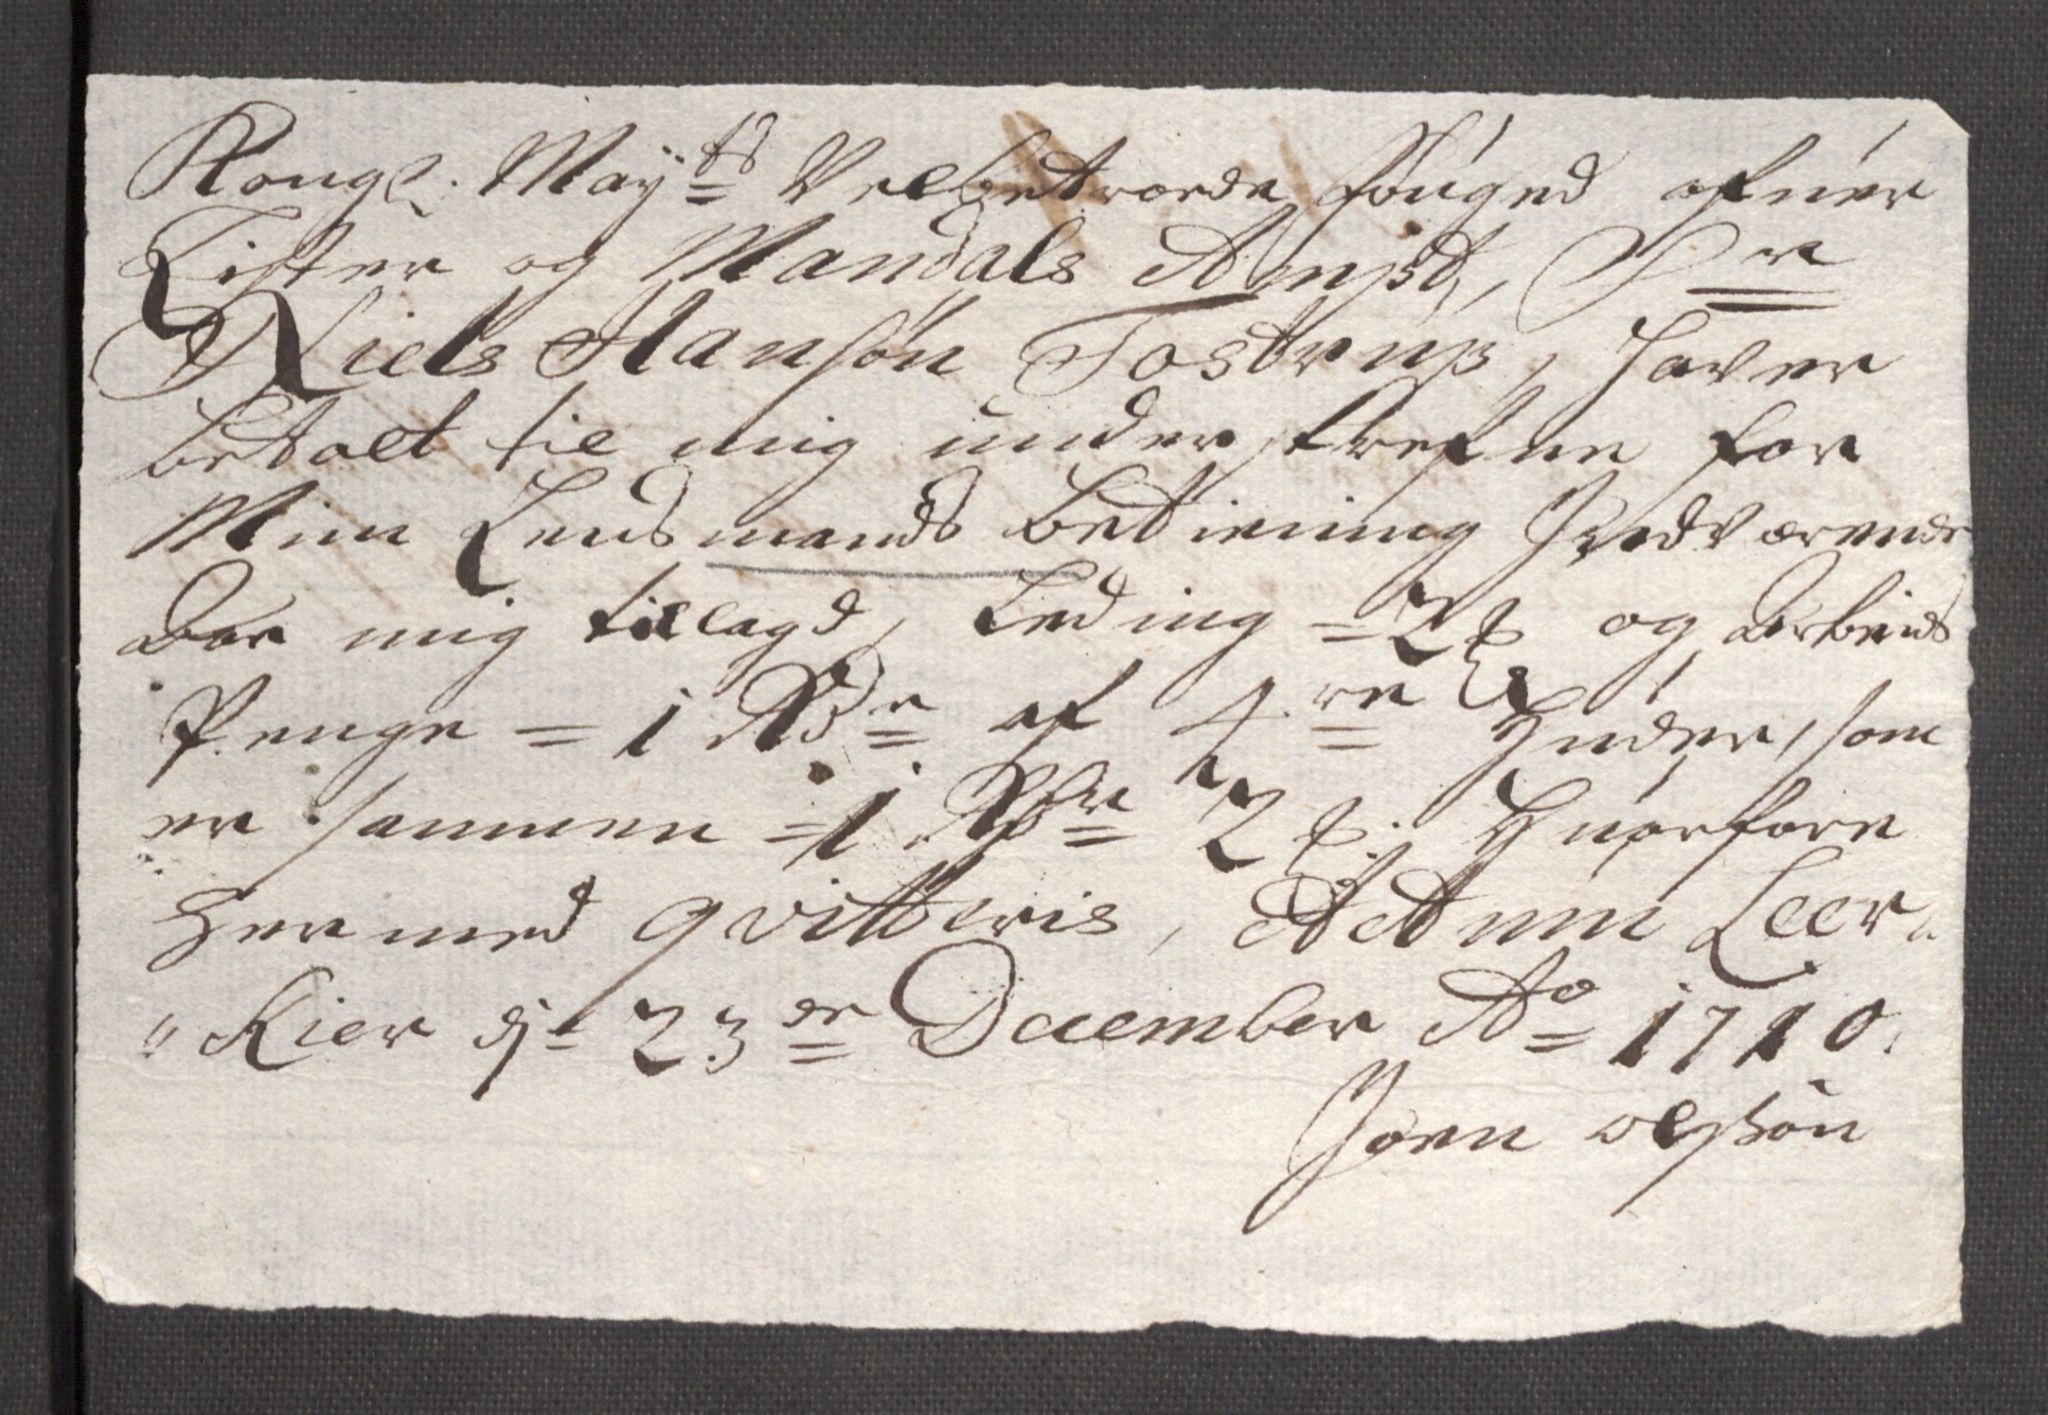 Kongl: Mayts Velbetroede fouged ofuer
Lister og Mandals Ampt, Sr
Niels Hansøn Tostrup, hafver
betalt til mig underskrefne for
Min Lensmands betiening Indværende
Aar mig tillagd, Leding = 2 ß og Arbeids
Penge = 1 Rdr af 4re Huder, som
er sammen = 1 Rdr 2 ß. Huorfore
hermed qvitteris, Actum Leer,,
,,Kier dn 23er December Ao 1710.
Joen olsøn